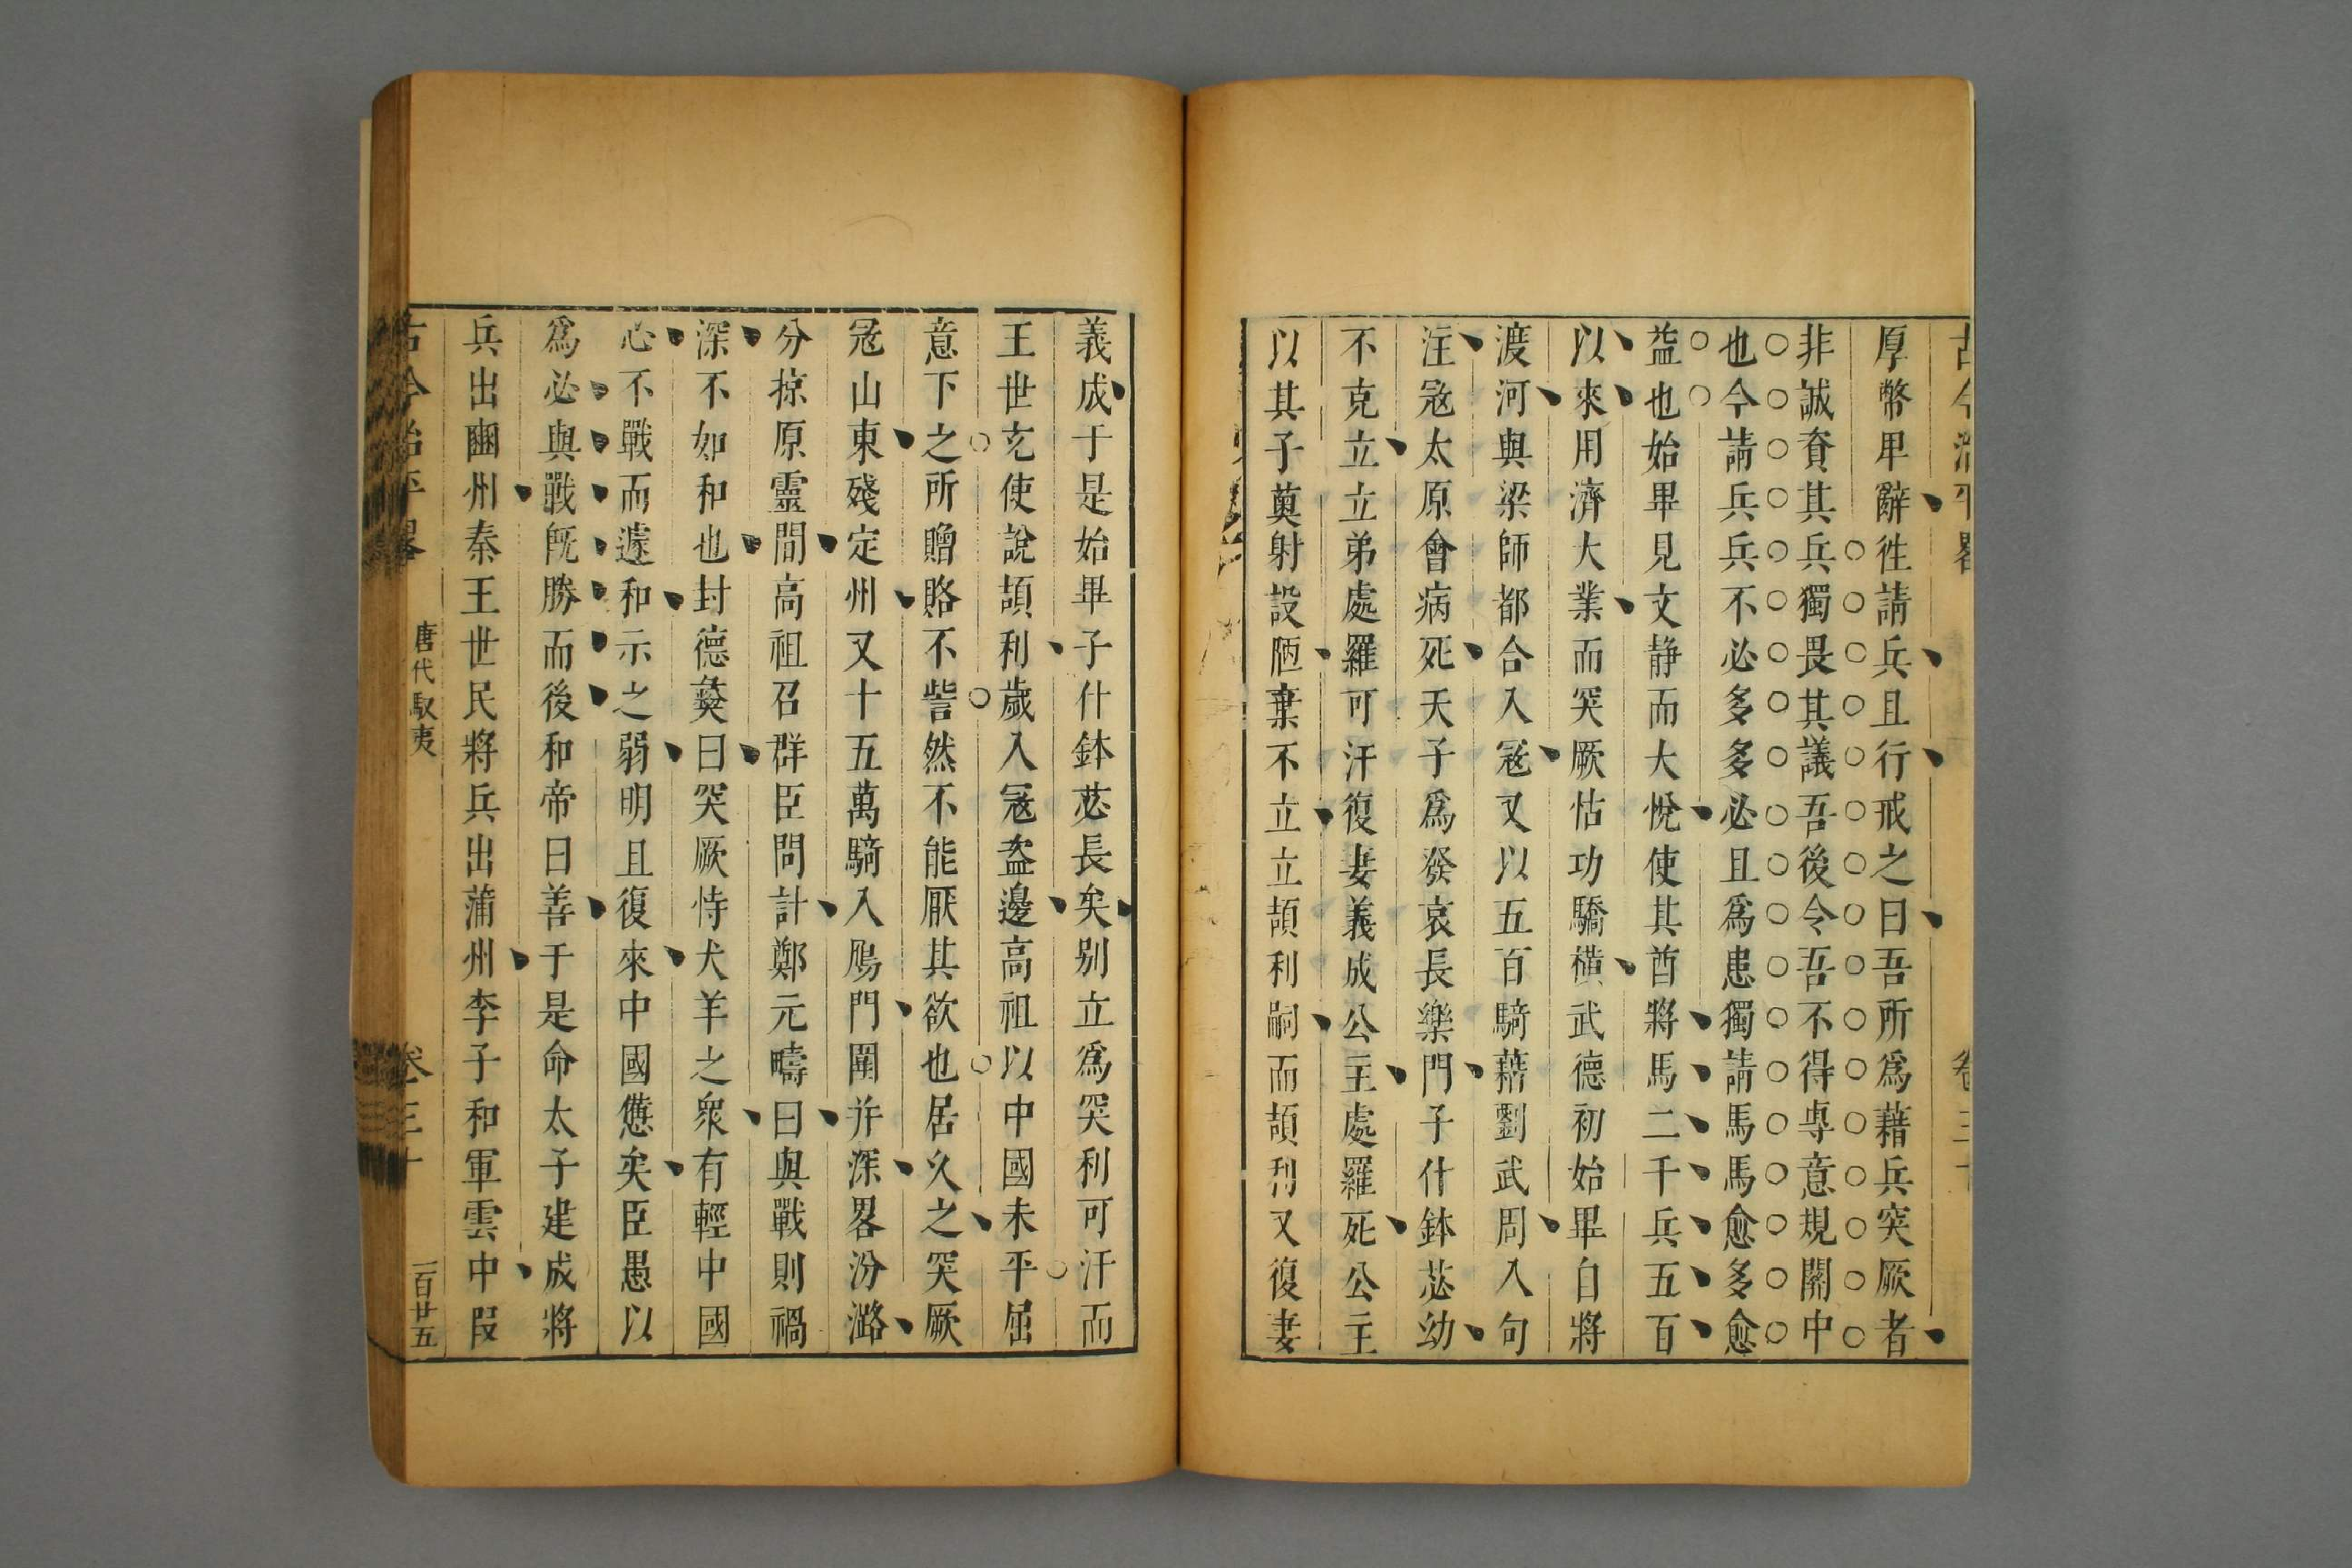 古今治平畧 卷三十
厚幣卑辭徃請兵且行戒之曰吾所爲藉兵突厥者
非誠資其兵獨畏其議吾後令吾不得専意規關中
也今請兵兵不必多多必且爲患獨請馬馬愈多愈
益也始畢見文静而大悅使其酋將馬二千兵五百
以來用濟大業而突厥怙功驕橫武德初始畢自將
渡河與梁師都合入宼又以五百騎藉劉武周入句
注宼太原會病死天子爲發哀長樂門子什鉢苾幼
不克立立弟處羅可汗復妻義成公主處羅死公主
以其子奠射設陋棄不立立頡利嗣而頡利又復妻
義成于是始畢子什鉢苾長矣别立爲突利可汗而
王世充使說頡利歲入宼盗邊高祖以中國未平屈
意下之所贈賂不訾然不能厭其欲也居久之突厥
宼山東殘定州又十五萬騎入鴈門圍并深畧汾潞
分掠原靈間高祖召群臣問計鄭元疇曰與戰則禍
深不如和也封德彝曰突厥恃犬羊之衆有輕中國
心不戰而遽和示之弱明且復來中國憊矣臣愚以
爲必與戰旣勝而後和帝曰善于是命太子建成將
兵出豳州秦王世民將兵出蒲州李子和軍雲中叚
古今治平畧 唐代馭夷 卷三十 一百廿五